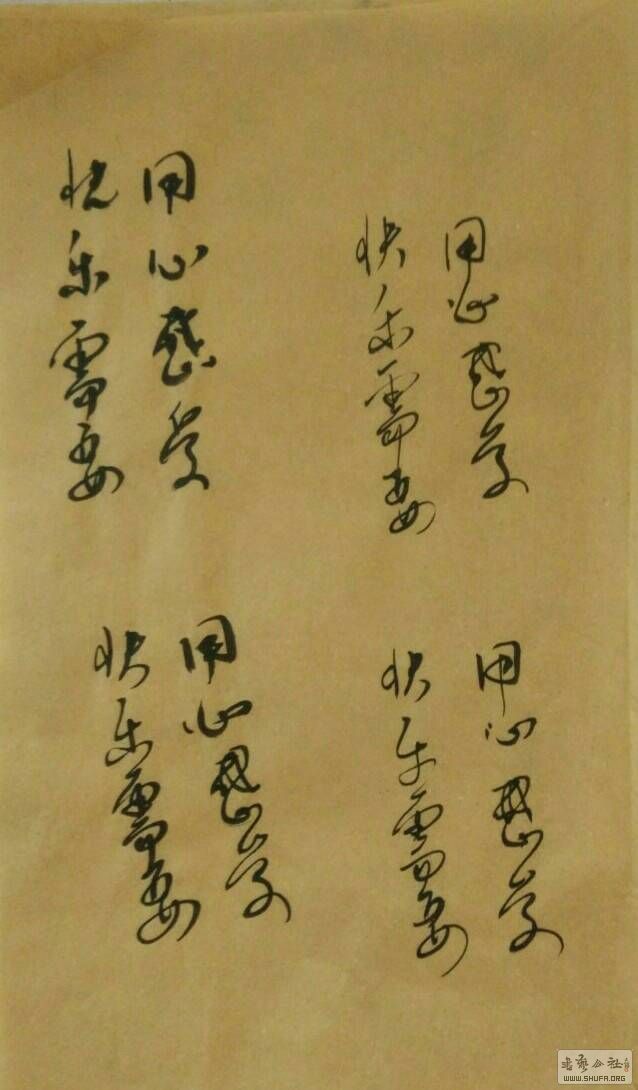 快乐需要
用心感受
快乐需要
用心感受
快乐需要
用心感受
快乐需要
用心感受
书艺公社
WWW.SHUFA.ORG